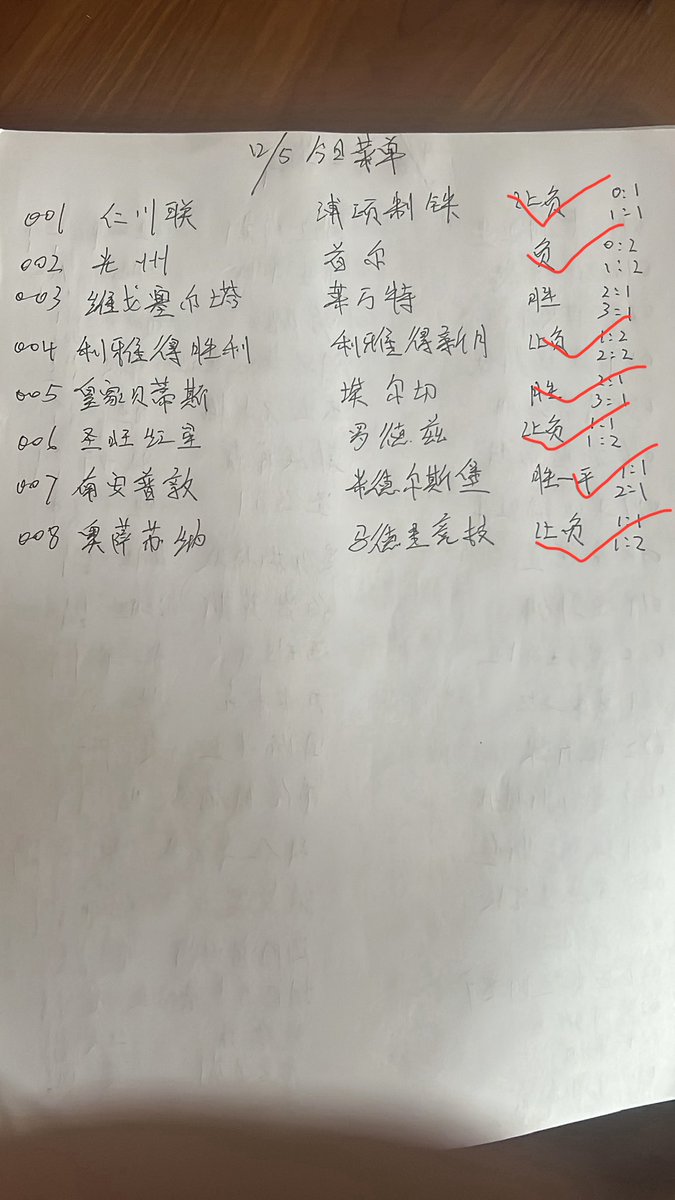 12/5 今日菜单
001 仁川联 浦项制铁 让负 0:1 1:1
002 光州 首尔 负 0:2 1:2
003 维戈塞尔塔 莱万特 胜 2:1 3:1
004 利雅得胜利 利雅得新月 让负 1:2 2:2
005 皇家贝蒂斯 埃尔切 胜 2:1 3:1
006 圣旺红星 罗德兹 让负 1:1 1:2
007 南安普敦 米德尔斯堡 胜一平 1:1 2:1
008 奥萨苏纳 马德里竞技 让负 1:1 1:2